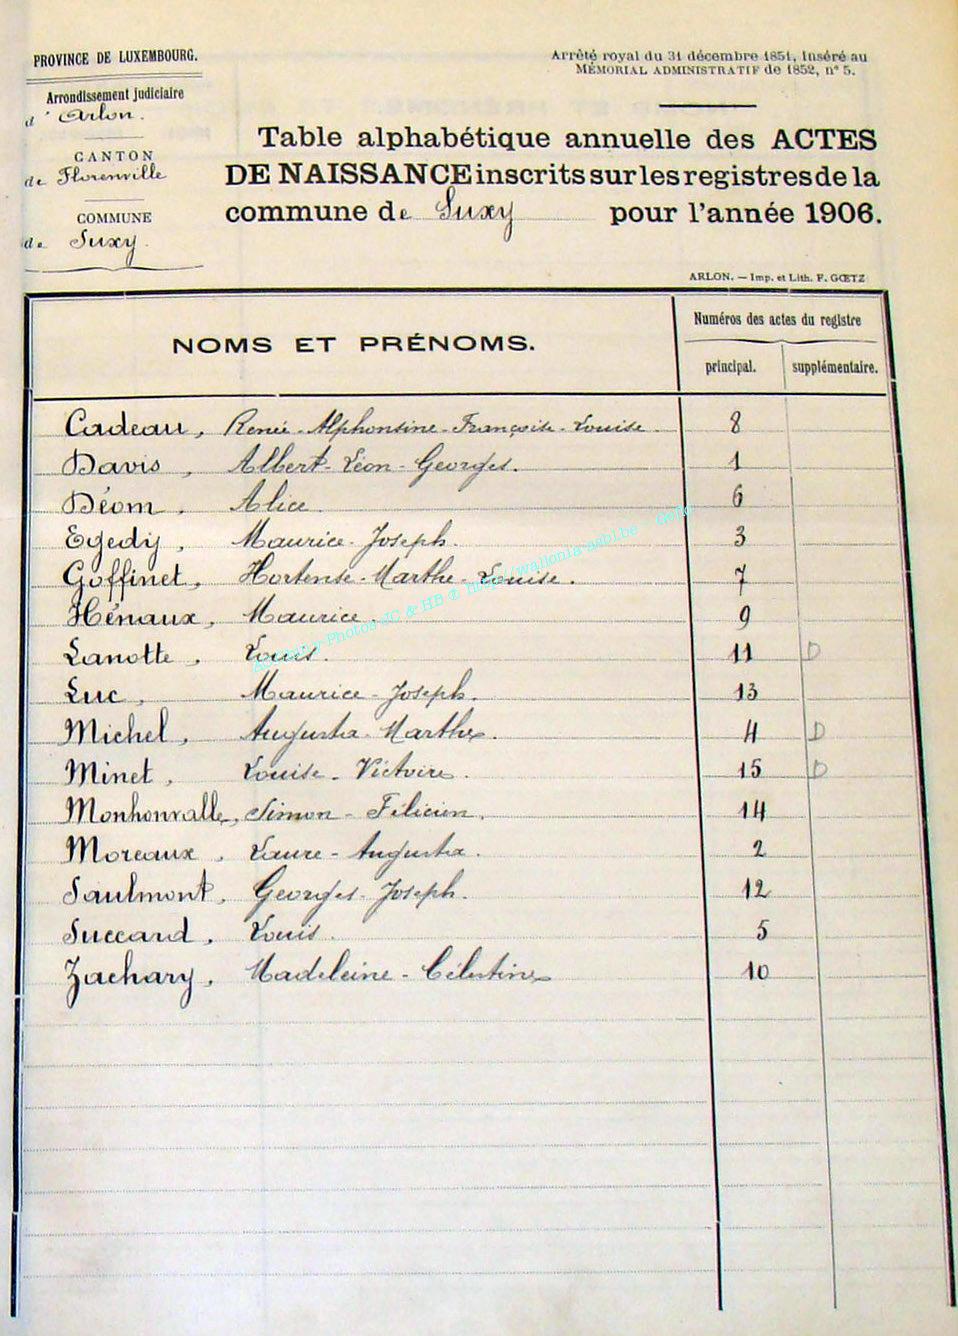 PROVINCE DE LUXEMBOURG.
Arrêté royal du 31 décembre 1851, inséré au
MÉMORIAL ADMINISTRATIF de 1852, n° 5.
Arrondissement judiciaire
d'Arlon.
CANTON
de Florenville
COMMUNE
de Suxy.
Table alphabétique annuelle des ACTES
DE NAISSANCE inscrits sur les registres de la
commune de Suxy pour l'année 1906.
ARLON. — Imp. et Lith. F. GŒTZ
NOMS ET PRÉNOMS.
Numéros des actes du registre
principal. supplémentaire.
Cadeau, Renée-Alphonsine-Françoise-Louise. 8
Davis, Albert-Léon-Georges. 1
Déom, Alice. 6
Egedy, Maurice-Joseph. 3
Goffinet, Hortense-Marthe-Louise. 7
Hénaux, Maurice. 9
Lanotte, Louis. 11 D
Luc, Maurice-Joseph. 13
Michel, Augusta-Marthe. 4 D
Minet, Louise-Victoire. 15 D
Monhonvalle, Simon-Félicien. 14
Moreaux, Laure-Augusta. 2
Saulmont, Georges-Joseph. 12
Succard, Louis. 5
Zachary, Madeleine-Célestine 10